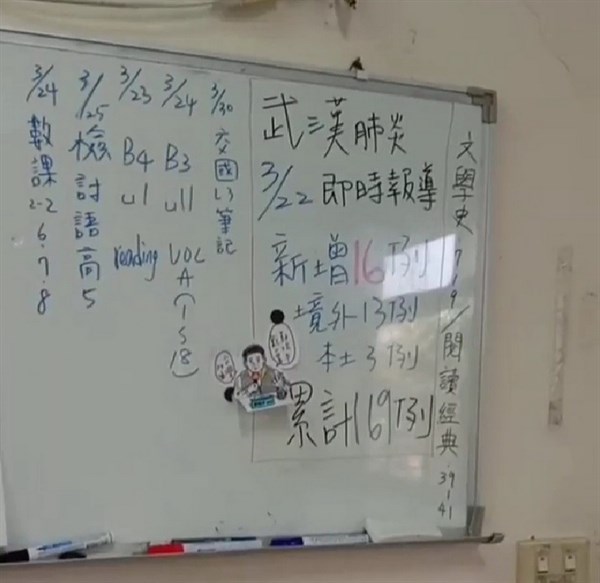 3/24 數課 2-2 6.7.8
3/25 檢討語高5
3/23 B4 u1 reading
3/24 B3 u11 voc A (1~5 18)
3/30 交國L3筆記
武漢肺炎
3/22 即時報導
新增16例
境外13例
本土3例
累計169例
文學史 7.9/閱讀經典 39-41